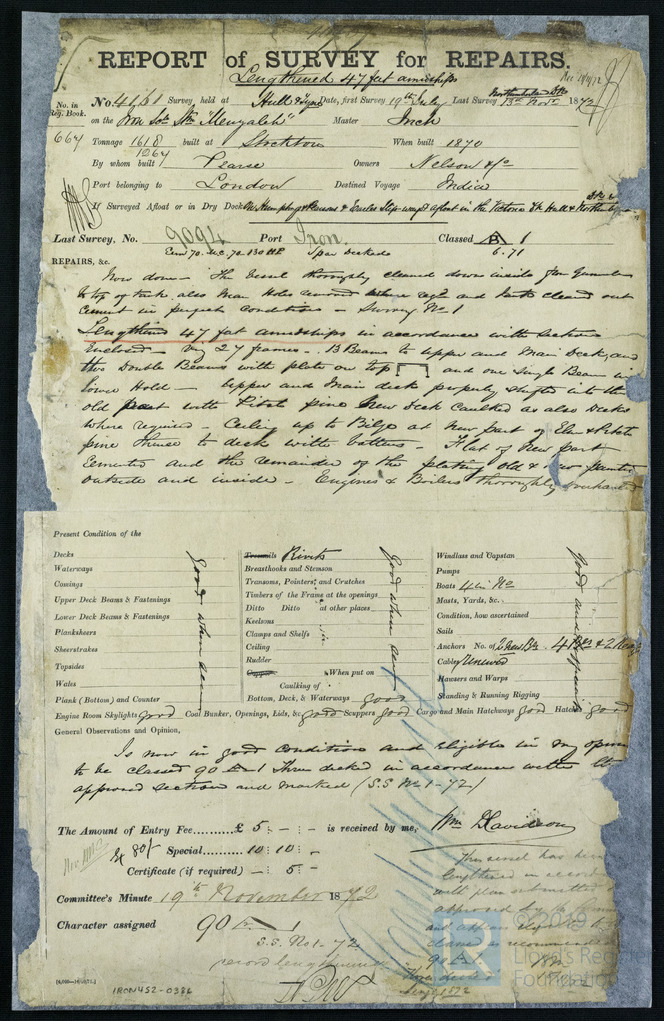 REPORT of SURVEY for REPAIRS.
Lengthened 47 feet amidships
No. in Reg. Book. No 4661 Survey held at Hull & Tyne Date, first Survey 19th July Last Survey 13th Novr 1872
on the Iron Str "Menzaleh" Master Inch
664 Tonnage 1618 built at Stockton When built 1870
1264
By whom built Pearse Owners Nelson & Co
Port belonging to London Destined Voyage India
If Surveyed Afloat or in Dry Dock afloat in the Victoria Dk Hull &
Last Survey, No. 9094 Port Iron. Classed A 1
Spar Decked 6.71
REPAIRS, &c.
Now done — The vessel thoroughly cleaned down inside from
to top of tank also Man Holes removed and tank cleaned out
Cement in perfect condition — Survey No 1
Lengthened 47 feet amidships in accordance with section
Enclosed — viz 27 frames — 13 Beams to Upper and Main Deck, and
two Double Beams with plate on top and one Single Beam in
lower Hold — Upper and Main deck properly shifted into the
old part with Pitch pine New Deck Caulked as also Decks
where required — Ceiling up to Bilge at new part of Elm & Pitch
pine thence to deck with battens — Flat of New part
Cemented and the remainder of the plating old & new painted
outside and inside — Engines & Boilers thoroughly overhauled
Present Condition of the
Decks
Waterways
Comings
Upper Deck Beams & Fastenings
Lower Deck Beams & Fastenings
Planksheers
Sheerstrakes
Topsides
Wales
Plank (Bottom) and Counter
good when seen
Treenails Rivets
Breasthooks and Stemson
Transoms, Pointers and Crutches
Timbers of the Frame at the openings
Ditto Ditto at other places
Keelsons
Clamps and Shelfs
Ceiling
Rudder
Copper When put on
Caulking of
Bottom, Deck, & Waterways good
good when seen
Windlass and Capstan
Pumps
Boats 4 in No
Masts, Yards, &c.
Condition, how ascertained
Sails
Anchors No. of
Cables Renewed
Hawsers and Warps
Standing & Running Rigging
good and efficient
Engine Room Skylights good Coal Bunker, Openings, Lids, &c. good Scuppers good Cargo and Main Hatchways good Hatches good
General Observations and Opinion,
Is now in good condition and Eligible in my opinion
to be classed 90 A 1 Three decked in accordance with the
approved section and marked (S.S No 1-72)
The Amount of Entry Fee.......... £ 5 : - : - is received by me, Wm Davidson
Special.......... 10 : 10 : -
Certificate (if required) - : 5 : -
Committee's Minute 19th November 1872
Character assigned 90 A 1
S.S. No 1-72
record lengthened
This vessel has been
lengthened in accord
with plan submitted &
approved by the
and
as recommended
90 A 1
IRON452-0336
© 2019
Lloyd's Register
Foundation